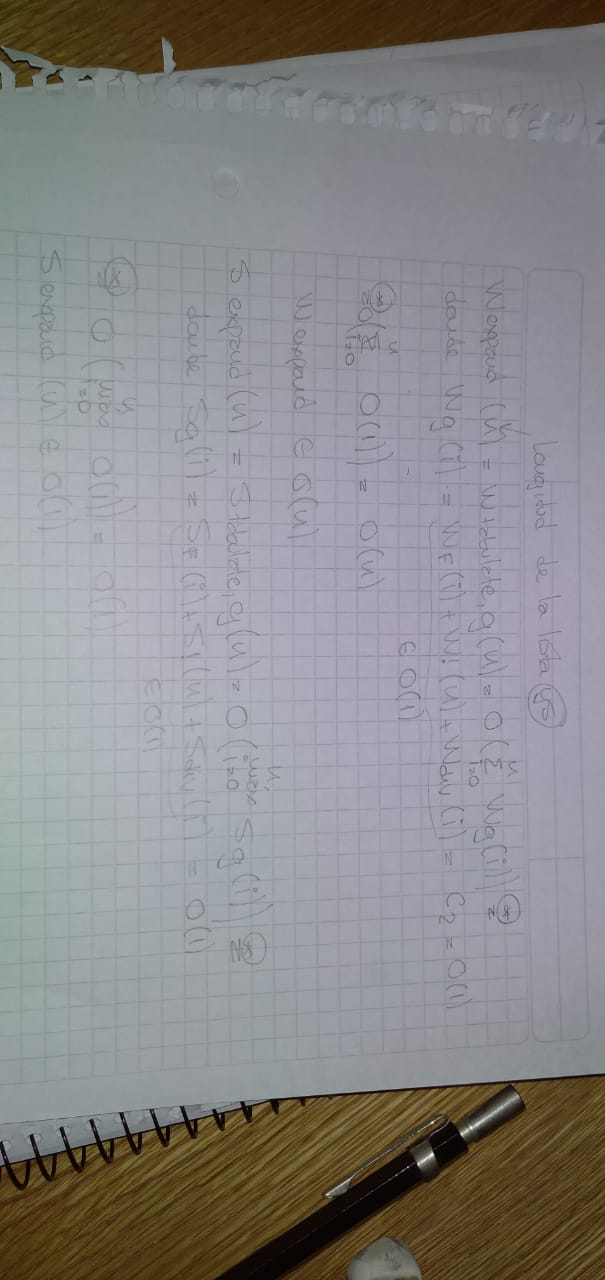 Longitud de la lista ys
W expand (n) = W tabulate, g(n) = O( Σ i=0 n Wg(i)) (*) =
donde Wg(i) = WF(i) + Wi(n) + Wdiv(i) = C2 = O(1)
∈ O(1)
(*) = O( Σ i=0 n O(1)) = O(n)
W expand ∈ O(n)
S expand (n) = S tabulate, g(n) = O( max i=0 n Sg(i)) (*) =
donde Sg(i) = SF(i) + Si(n) + Sdiv(i) = O(1)
∈ O(1)
(*) = O( max i=0 n O(1)) = O(1)
S expand (n) ∈ O(1)